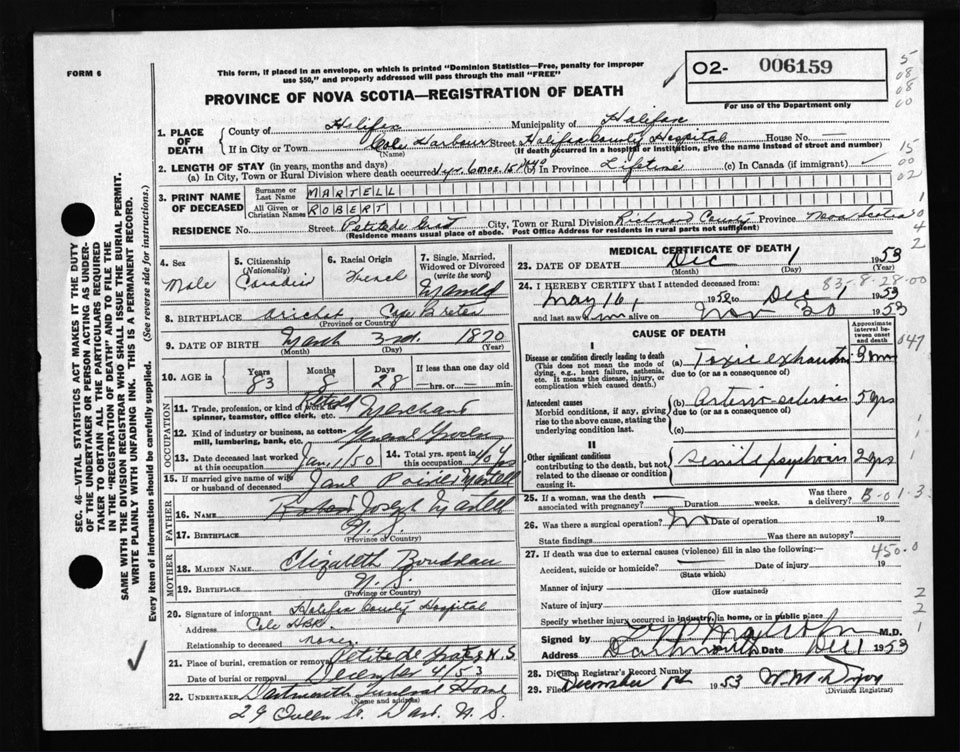 FORM 6
This form, if placed in an envelope, on which is printed "Dominion Statistics—Free, penalty for improper
use $50," and properly addressed will pass through the mail "FREE"
O2- 006159
For use of the Department only
PROVINCE OF NOVA SCOTIA—REGISTRATION OF DEATH
1. PLACE OF DEATH
County of Halifax Municipality of Halifax
If in City or Town Cole Harbour Street Halifax County Hospital House No. —
(Name) (If death occurred in a hospital or institution, give name instead of street and number)
2. LENGTH OF STAY (in years, months and days)
(a) In City, Town or Rural Division where death occurred 1 yr. 6 mos. 15 (b) In Province Lifetime (c) In Canada (if immigrant)
3. PRINT NAME OF DECEASED
Surname or Last Name MARTELL
All Given or Christian Names ROBERT
RESIDENCE No. Street Petit de Grat City, Town or Rural Division Richmond County Province Nova Scotia
(Residence means usual place of abode. Post Office Address for residents in rural parts not sufficient)
4. Sex Male
5. Citizenship (Nationality) Canadian
6. Racial Origin French
7. Single, Married, Widowed or Divorced (write the word) Married
8. BIRTHPLACE Arichat Cape Breton
(Province or Country)
9. DATE OF BIRTH March 3rd. 1870
(Month) (Day) (Year)
10. AGE in Years 83 Months 8 Days 28 If less than one day old —hrs. or —min.
OCCUPATION
11. Trade, profession, or kind of work as spinner, teamster, office clerk, etc. Retired Merchant
12. Kind of industry or business, as cotton-mill, lumbering, bank, etc. General Grocery
13. Date deceased last worked at this occupation Jan. 1/50 14. Total yrs. spent in this occupation 40 yrs
15. If married give name of wife or husband of deceased Jane Poirier Martell
FATHER
16. Name Robert Joseph Martell
17. Birthplace N. S.
(Province or Country)
MOTHER
18. MAIDEN NAME Elizabeth Boudreau
19. BIRTHPLACE N. S.
(Province or Country)
20. Signature of informant Halifax County Hospital
Address Cole Hbr.
Relationship to deceased none
21. Place of burial, cremation or removal Petit de Grat N. S
Date of burial or removal December 4/53
22. UNDERTAKER Dartmouth Funeral Home
(Name and address)
29 Queen St. Dart. N. S.
MEDICAL CERTIFICATE OF DEATH
23. DATE OF DEATH Dec 1 1953
(Month) (Day) (Year)
83-8-28-00
24. I HEREBY CERTIFY that I attended deceased from:
May 16, 1952 to Dec 1 1953
and last saw him alive on Nov 30 1953
CAUSE OF DEATH
Approximate interval between onset and death
I
Disease or condition directly leading to death
(This does not mean the mode of dying, e.g., heart failure, asthenia, etc. It means the disease, injury, or complication which caused death.)
(a) Toxic exhaustion 3
due to (or as a consequence of)
Antecedent causes
Morbid conditions, if any, giving rise to the above cause, stating the underlying condition last.
(b) Arterio-sclerosis 5 yrs
due to (or as a consequence of)
(c)
II
Other significant conditions
contributing to the death, but not related to the disease or condition causing it.
senile psychosis 2 yrs
25. If a woman, was the death associated with pregnancy? Duration weeks. Was there a delivery?
B-01-3
26. Was there a surgical operation? No Date of operation 19
State findings Was there an autopsy?
27. If death was due to external causes (violence) fill in also the following:—
450-0
Accident, suicide or homicide? Date of injury 19
(State which)
Manner of injury
(How sustained)
Nature of injury
Specify whether injury occurred in industry, in home, or in public place
Signed by M.D.
Address Dartmouth Date Dec 1 1953
28. Division Registrar's Record Number
29. Filed December 1st 1953 W. M.
(Division Registrar)
SEC. 46—VITAL STATISTICS ACT MAKES IT THE DUTY
OF THE UNDERTAKER OR PERSON ACTING AS UNDER-
TAKER TO OBTAIN ALL THE PARTICULARS REQUIRED
IN THE "REGISTRATION OF DEATH" AND TO FILE THE
SAME WITH THE DIVISION REGISTRAR WHO SHALL ISSUE THE BURIAL PERMIT.
WRITE PLAINLY WITH UNFADING INK. THIS IS A PERMANENT RECORD.
Every item of information should be carefully supplied. (See reverse side for instructions.)